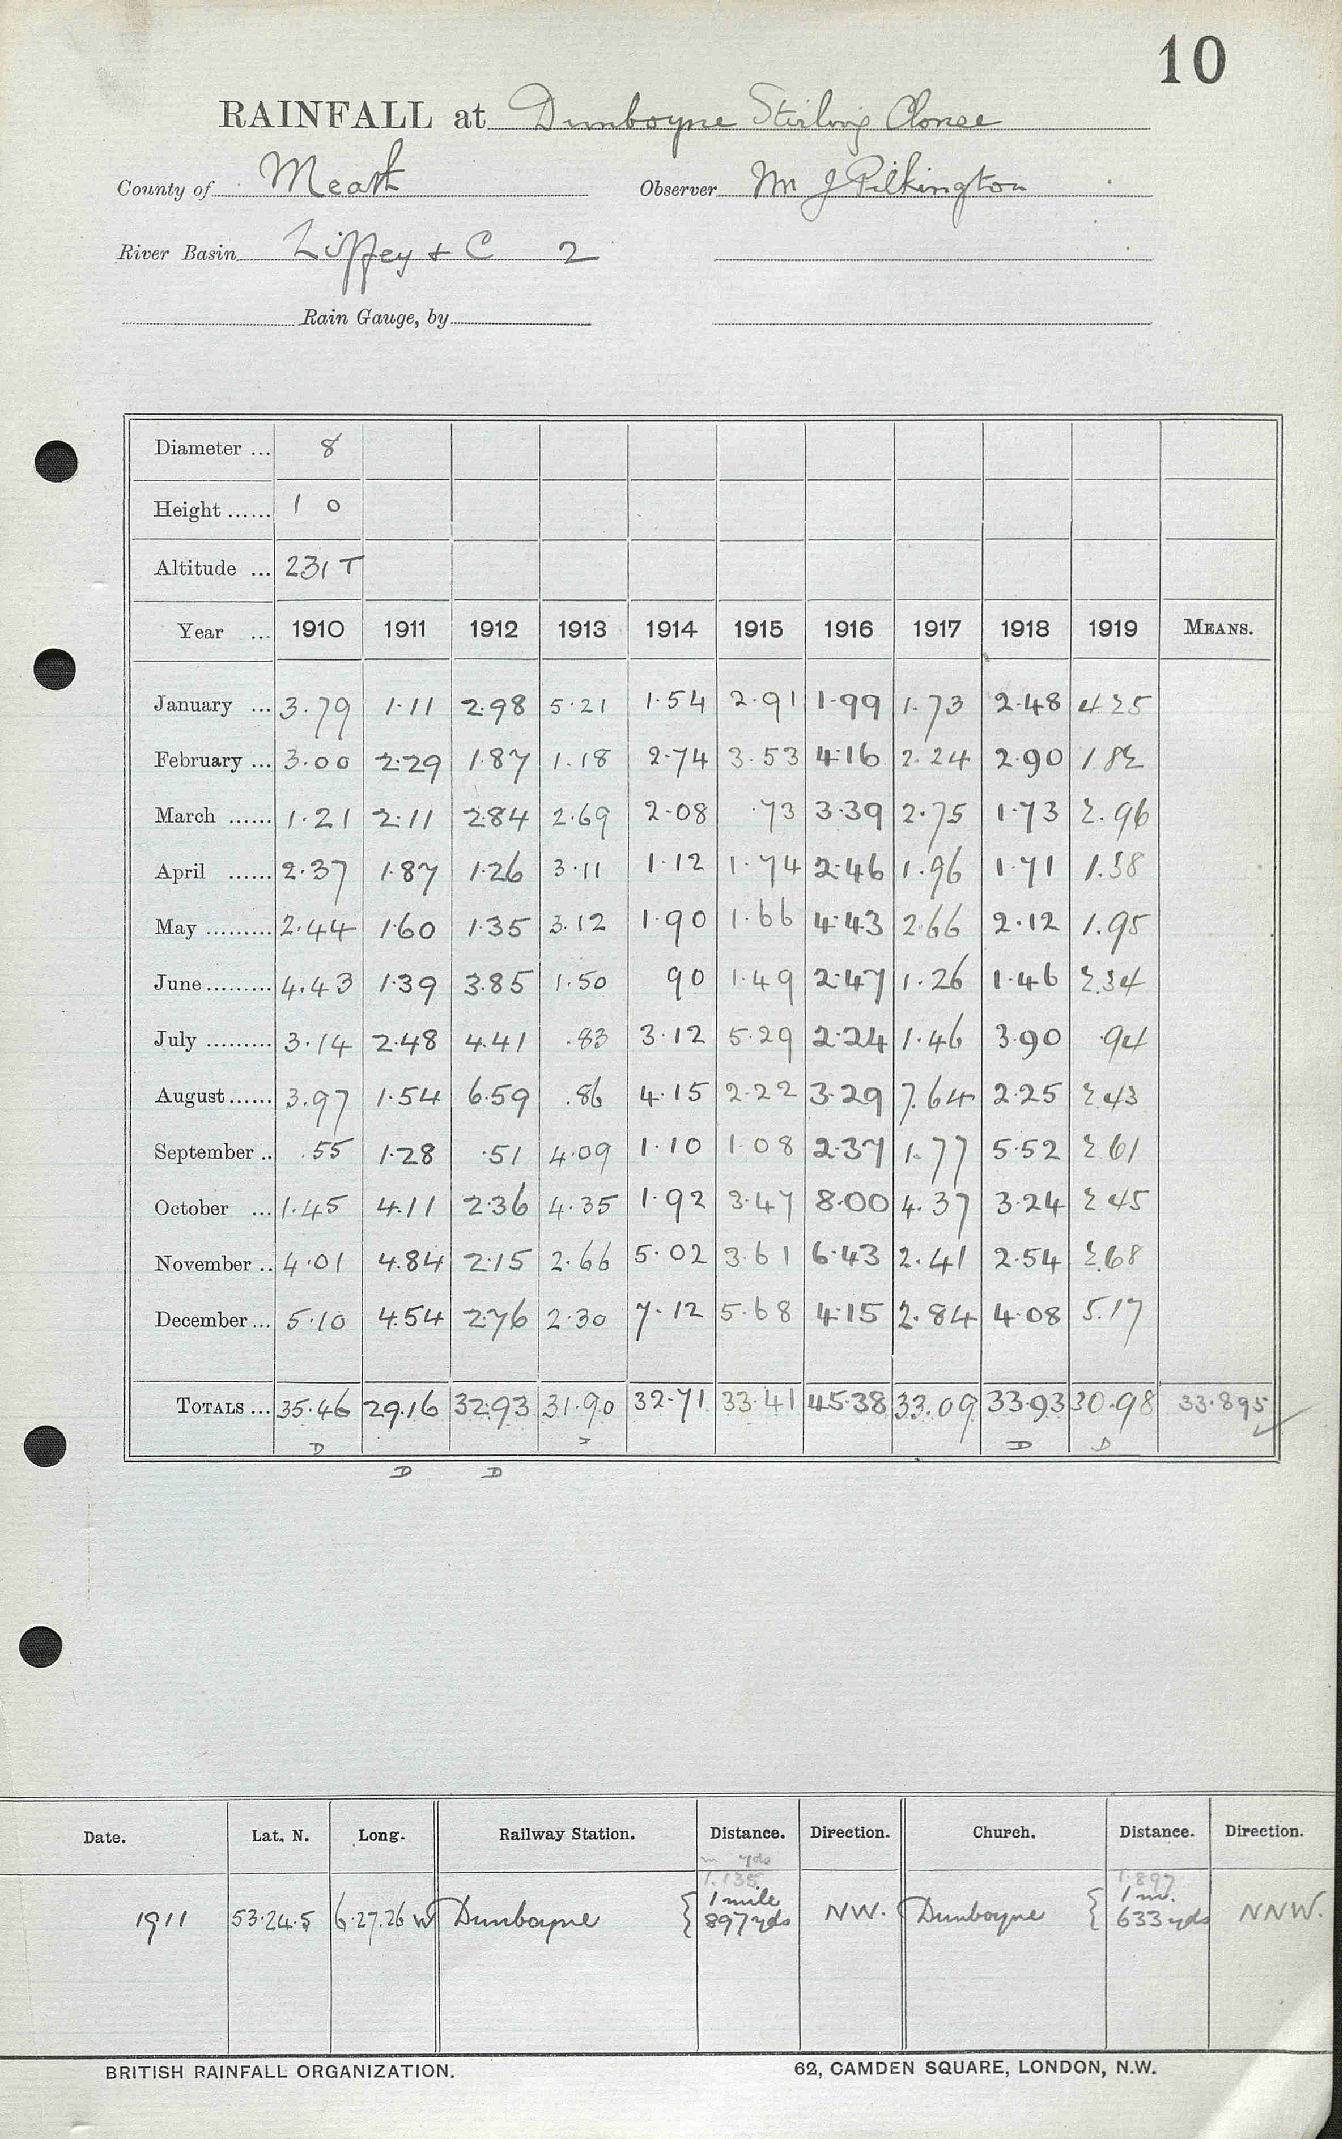 10
RAINFALL at Dunboyne Stirling Clonee
County of Meath Observer Mr J Pilkington
River Basin Liffey + C 2
Rain Gauge, by
Diameter ... 8
Height ...... 1 0
Altitude ... 231 T
Year ... 1910 1911 1912 1913 1914 1915 1916 1917 1918 1919 MEANS.
January ... 3.79 1.11 2.98 5.21 1.54 2.91 1.99 1.73 2.48 4 25
February ... 3.00 2.29 1.87 1.18 2.74 3.53 4.16 2.24 2.90 1 82
March ...... 1.21 2.11 2.84 2.69 2.08 .73 3.39 2.75 1.73 2.96
April ...... 2.37 1.87 1.26 3.11 1.12 1.74 2.46 1.96 1.71 1.38
May ......... 2.44 1.60 1.35 3.12 1.90 1.66 4.43 2.66 2.12 1.95
June ......... 4.43 1.39 3.85 1.50 90 1.49 2.47 1.26 1.46 2.34
July ......... 3.14 2.48 4.41 .83 3.12 5.29 2.24 1.46 3.90 .94
August ...... 3.97 1.54 6.59 .86 4.15 2.22 3.29 7.64 2.25 2 43
September .. .55 1.28 .51 4.09 1.10 1.08 2.37 1.77 5.52 2 61
October ... 1.45 4.11 2.36 4.35 1.92 3.47 8.00 4.37 3.24 2 45
November .. 4.01 4.84 2.15 2.66 5.02 3.61 6.43 2.41 2.54 2.68
December ... 5.10 4.54 2.76 2.30 7.12 5.68 4.15 2.84 4.08 5.17
TOTALS ... 35.46 29.16 32.93 31.90 32.71 33.41 45.38 33.09 33.93 30.98 33.895
D D D
D D
Date. Lat. N. Long. Railway Station. Distance. Direction. Church. Distance. Direction.
m yds
1.135 1.897
1911 53.24.5 6.27.26 W Dunboyne 1 mile NW. Dunboyne 1 m. NNW.
897 yds 633 yds
BRITISH RAINFALL ORGANIZATION. 62, CAMDEN SQUARE, LONDON, N.W.